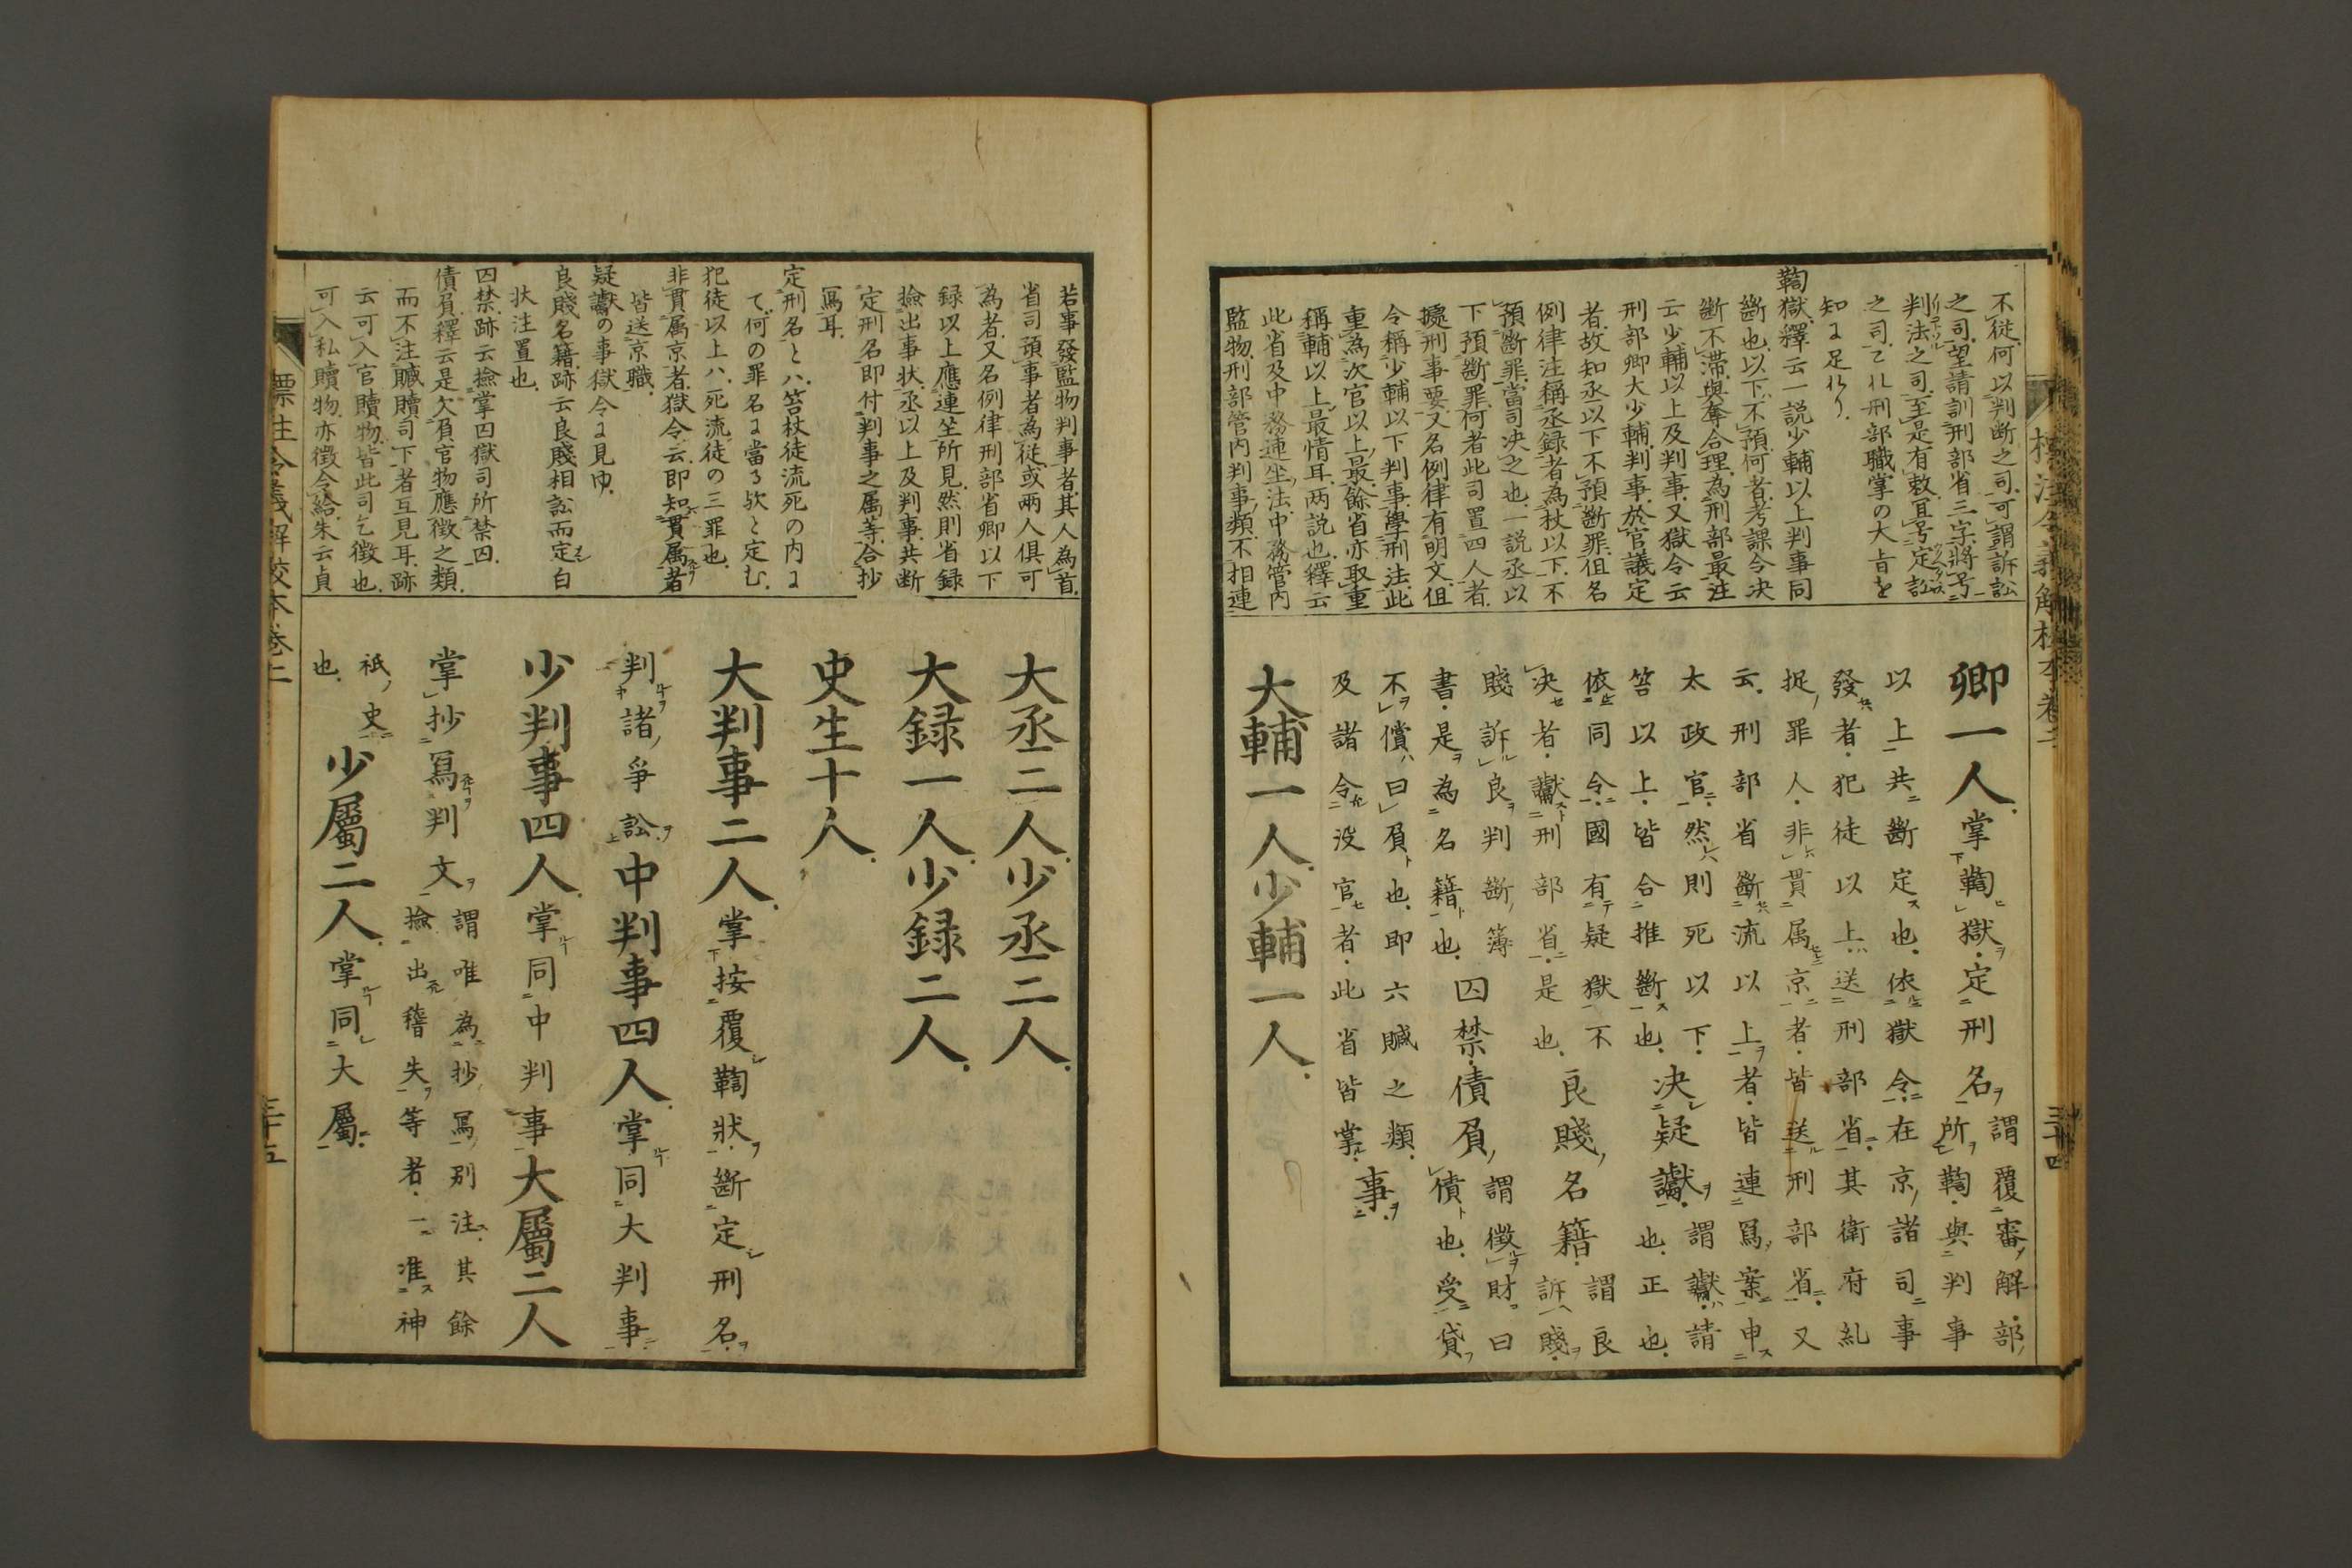 不従何以判断之司可謂訴訟
之司望請訓刑部省三字将号
判法之司至是有敕宜号定訟
之司
知
鞫獄釋云一説少輔以上判事同
断也以下不預何者考課令决
断不滞與奪合理為刑部最注
云少輔以上及判事又獄令云
刑部卿大少輔判事於官議定
者故知丞以下不預断罪但名
例律注稱丞録者為杖以下不
預断罪當司决之也一説丞以
下預断罪何者此司置四人者
擬刑事要又名例律有明文但
令稱少輔以下判事學刑法此
重為次官以上最餘省亦取重
稱輔以上最情耳两説也釋云
此省及中務連坐法中務管内
監物刑部管内判事類不相連
卿一人掌鞫獄定刑名謂覆審解部
所鞫與判事
以上共斷定也依獄令在京諸司事
發者犯徒以上送刑部省其衛府糺
捉罪人非貫属京者皆送刑部省又
云刑部省斷流以上者皆連寫案申
太政官然則死以下决疑讞謂讞請
笞以上皆合推斷也也正也
依同令國有疑獄不良賤名籍謂良
决者讞刑部省是也訴賤
賤訴良判斷簿囚禁債負謂徵財曰
書是為名籍也債也受貸
不償曰負也即六贓之類事
及諸令没官者此省皆掌
大輔一人少輔一人
標注令義解校本巻二
三十四
若事發監物判事者其人為首
省司預事者為従或兩人俱可
為者又名例律刑部省卿以下
録以上應連坐所見然則省録
撿出事状丞以上及判事共断
定刑名即付判事之属等合抄
寫耳
定刑名とハ笞杖徒流死の内に
て何の罪名に當る欤と定む
犯徒以上ハ死流徒の三罪也
非貫属京者獄令云即知貫属者
皆送京職
疑讞の事獄令に見ゆ
良賤名籍跡云良賤相訟而定白
状注置也
囚禁跡云撿掌囚獄司所禁囚
債負釋云是欠負官物應徴之類
而不注贓贖司下者互見耳跡
云可入官贖物皆此司乞徴也
可入私贖物亦徴令給朱云貞
大丞二人少丞二人
大録一人少録二人
史生十人
大判事二人掌按覆鞫狀斷定刑名
判諸爭訟中判事四人掌同大判事
少判事四人掌同中判事大屬二人
掌抄寫判文謂唯為抄寫別注其餘
撿出稽失等者一准神
祇史少屬二人掌同大屬
也
標注令義解校本巻二
三十五